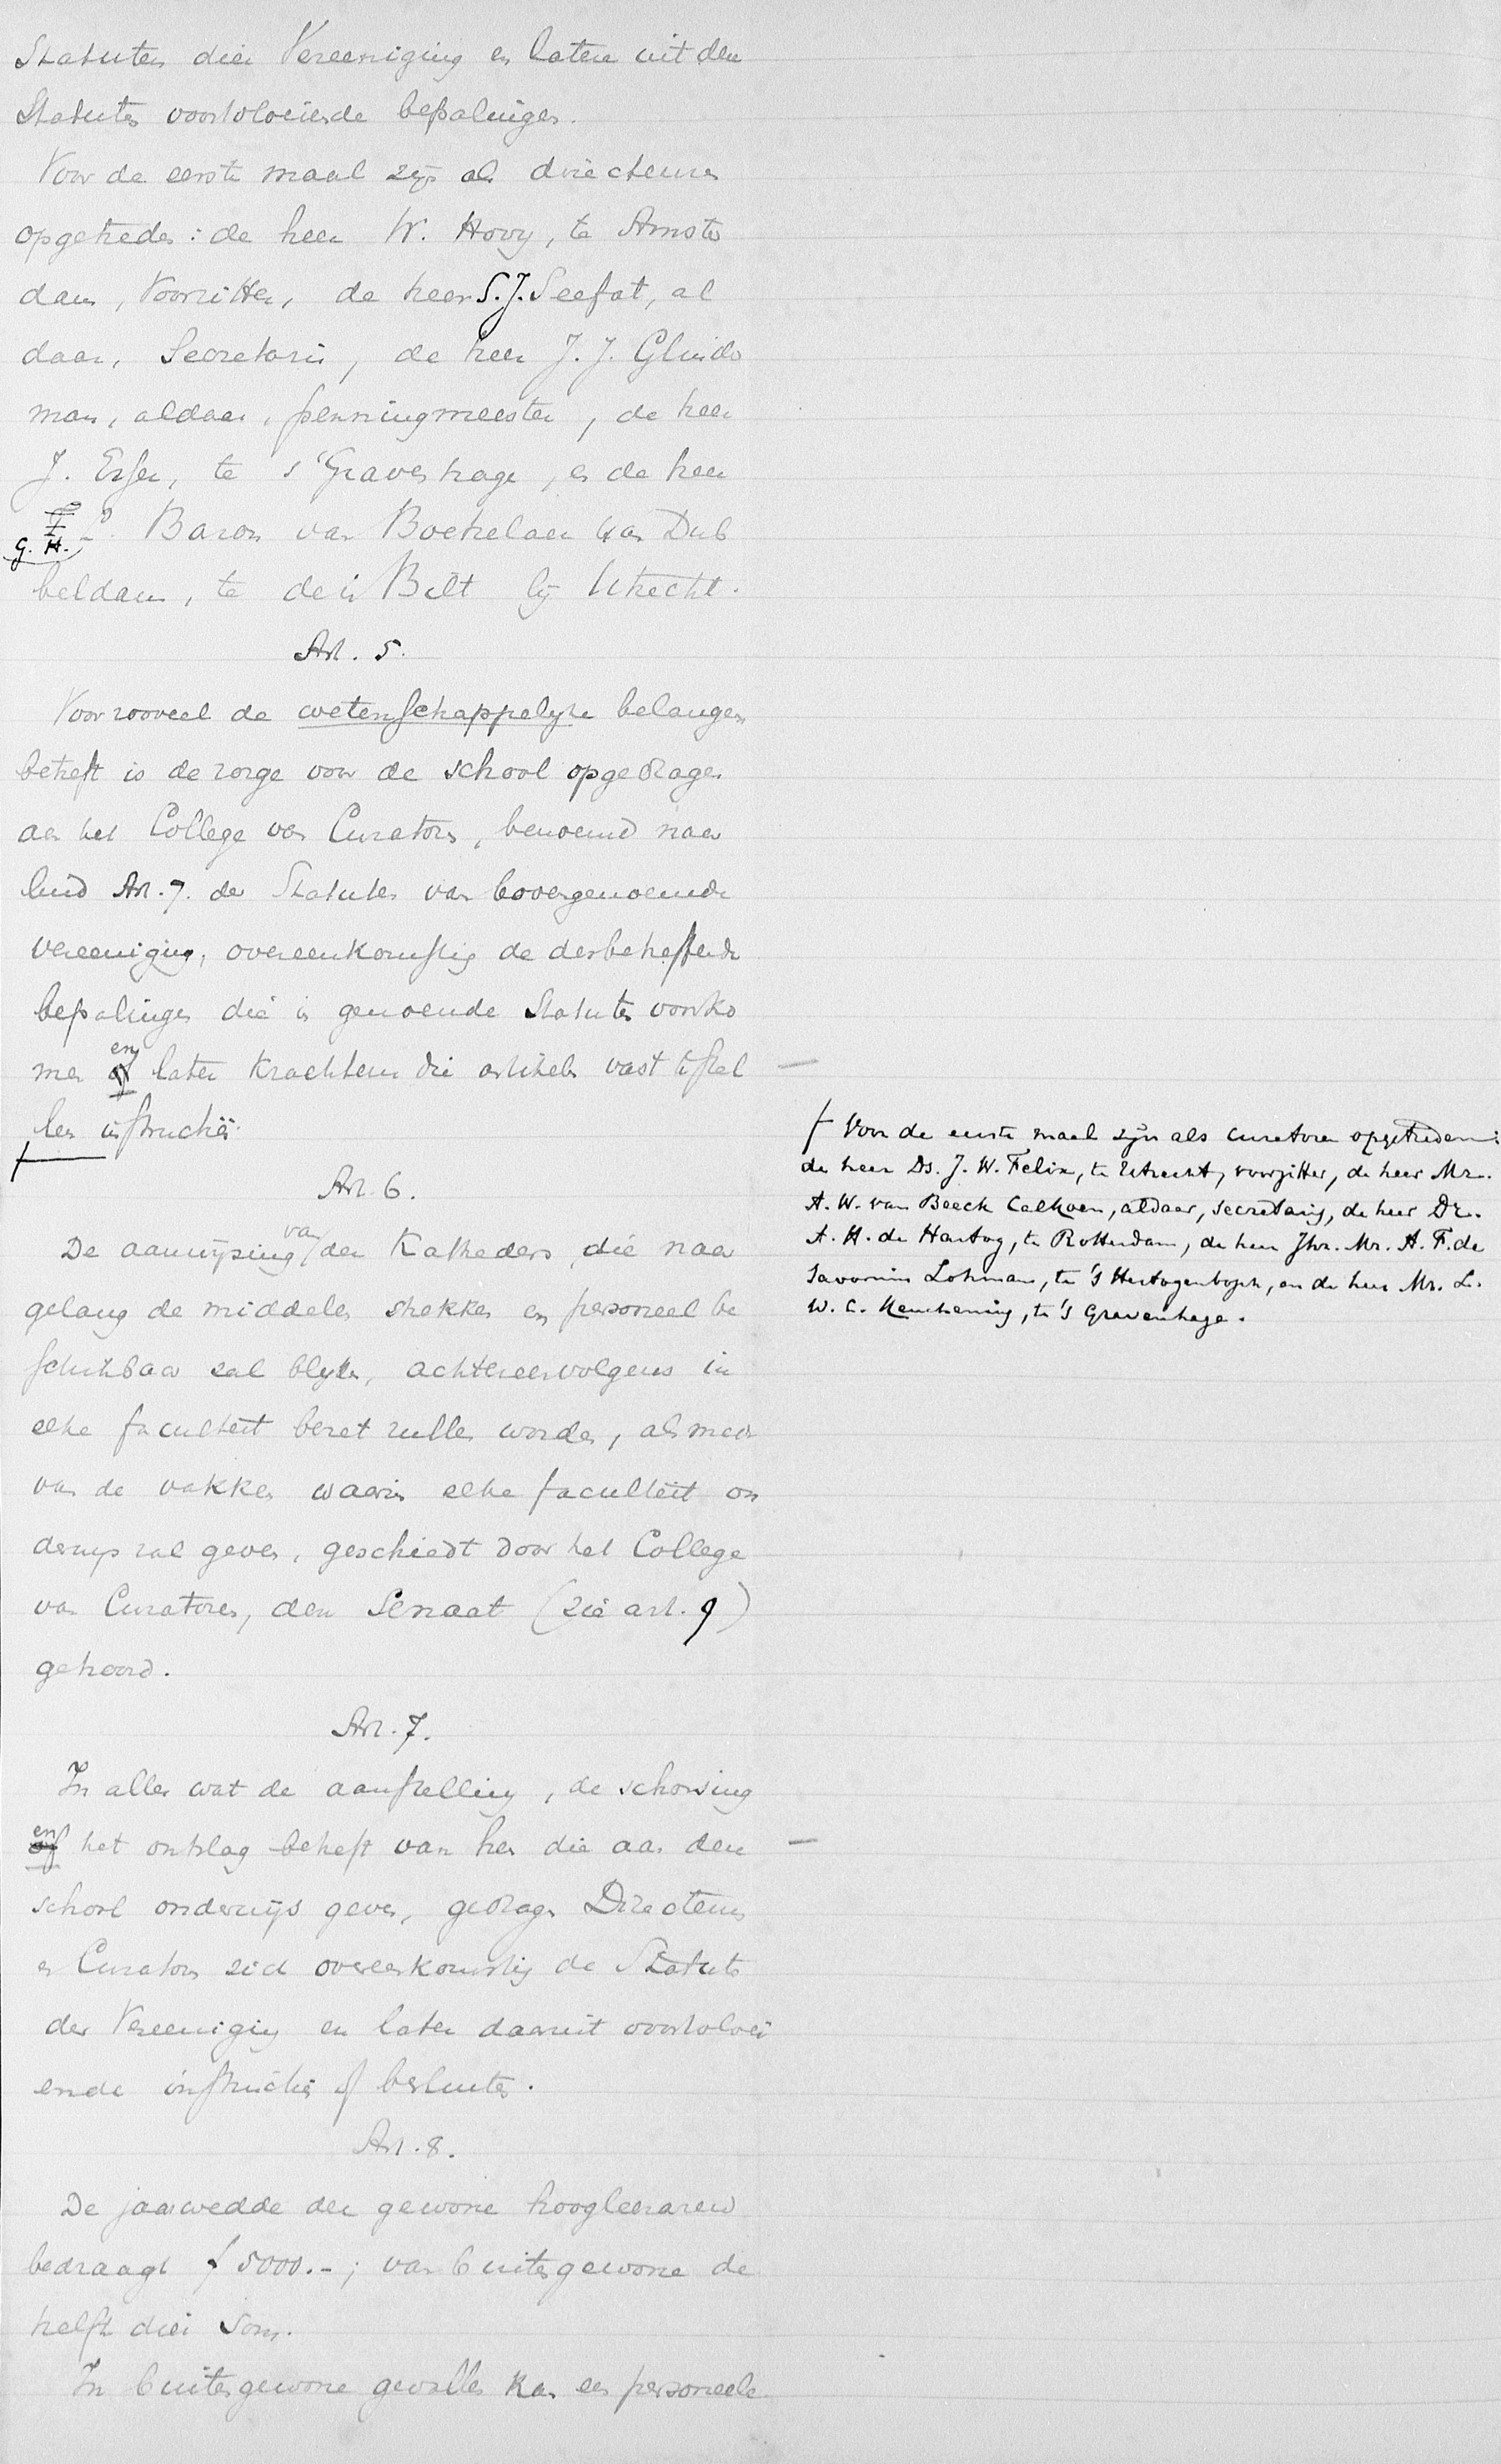 Statuten dier Vereeniging en latere uit den
Statuten voortvloeiende bepalingen.
Voor de eerste maal zijn als directeuren
opgetreden: de heer W. Hovy, te Amster
dam, Voorzitter, de heer S. J. Seefat, al
daar, Secretaris, de heer J. J. Gluindo
man, aldaar, penningmeester, de heer
J. Esser, te s'Gravenhage, en de heer
G. H. L. Baron van Boetzelaer van Dub
beldam, te de Bilt bij Utrecht.
Art. 5.
Voor zooveel de wetenschappelijke belangen
betreft is de zorge voor de school opgedragen
aan het College van Curatoren, benoemd naar
luid Art. 7. der Statuten van bovengenoemde
vereeniging, overeenkomstig de desbetreffende
bepalingen die in genoemde Statuten voorko
men en later krachtens die artikelen vast te stel
len instructiën.
Art. 6.
De aanwijzing van den Katheders, die naar
gelang de middelen strekken en personeel be
schikbaar zal blijken, achtereenvolgens in
elke faculteit bezet zullen worden, alsmede
van de vakken waarin elke faculteit on
derwijs zal geven, geschiedt door het College
van Curatoren, den Senaat (zie art. 9)
gehoord.
Art. 7.
In alles wat de aanstelling, de schorsing
en het ontslag betreft van hen die aan deze
school onderwijs geven, gedragen Directeuren
en Curatoren zich overeenkomstig de Statuten
der Vereeniging en later daaruit voortvloei
ende instructiën of besluiten.
Art. 8.
De jaarwedde der gewone hoogleeraren
bedraagt f 5000.-; van buitengewone de
helft dier som.
In buitengewone gevallen kan een personeele
Voor de eerste maal zijn als curatoren opgetreden:
de heer Ds. J. W. Felix, te Utrecht, voorzitter, de heer Mr.
A. W. van Beeck Calkoen, aldaar, secretaris, de heer Dr.
A. H. de Hartog, te Rotterdam, de heer Jhr. Mr. A. F. de
Savornin Lohman, te 's Hertogenbosch, en de heer Mr. L.
W. C. Keuchenius, te 's Gravenhage.